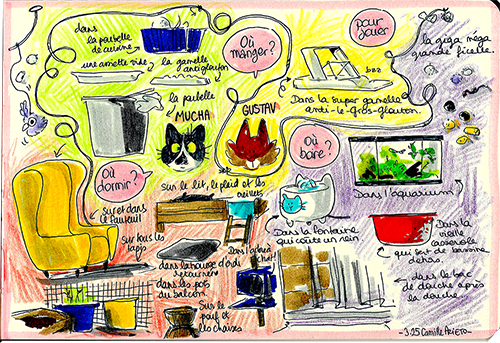 dans
la poubelle
de cuisine
une assiette vide
la gamelle
d'antiglouton
Où
manger?
Pour
jouer
la giga mega
grande ficelle.
bzz
Dans la super gamelle
anti-le-gros-glouton.
la poubelle
MUCHA
GUSTAV
Où
boire?
Où
dormir?
sur le lit, le plaid et les
oreillers
sur et dans
le fauteuil
sur tous les
tapis
Dans la fontaine
qui coûte un rein
Dans l'aquarium
Dans la
vieille
casserole
qui sert de
dehors
dans le bac
de douche après
la douche.
dans les pots
du balcon
Sur le
pouf et
les chaises
3.25 Camille